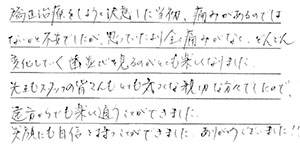 矯正治療をしようと決意した当初、痛みがあるのでは
ないかと不安でしたが、思っていたより全く痛みがなく、どんどん
変化していく歯並びを見るのがとても楽しくなりました。
先生もスタッフの皆さんもとても親切な方々でしたので、
遠方からでも楽しく通うことができました。
笑顔にも自信を持つことができました。ありがとうございました!!